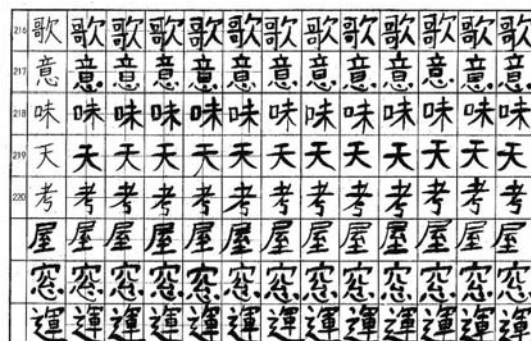 216 歌 歌 歌 歌 歌 歌 歌 歌 歌 歌 歌 歌 歌
217 意 意 意 意 意 意 意 意 意 意 意 意 意
218 味 味 味 味 味 味 味 味 味 味 味 味 味
219 天 天 天 天 天 天 天 天 天 天 天 天 天
220 考 考 考 考 考 考 考 考 考 考 考 考 考
屋 屋 屋 屋 屋 屋 屋 屋 屋 屋 屋 屋 屋
窓 窓 窓 窓 窓 窓 窓 窓 窓 窓 窓 窓 窓
運 運 運 運 運 運 運 運 運 運 運 運 運